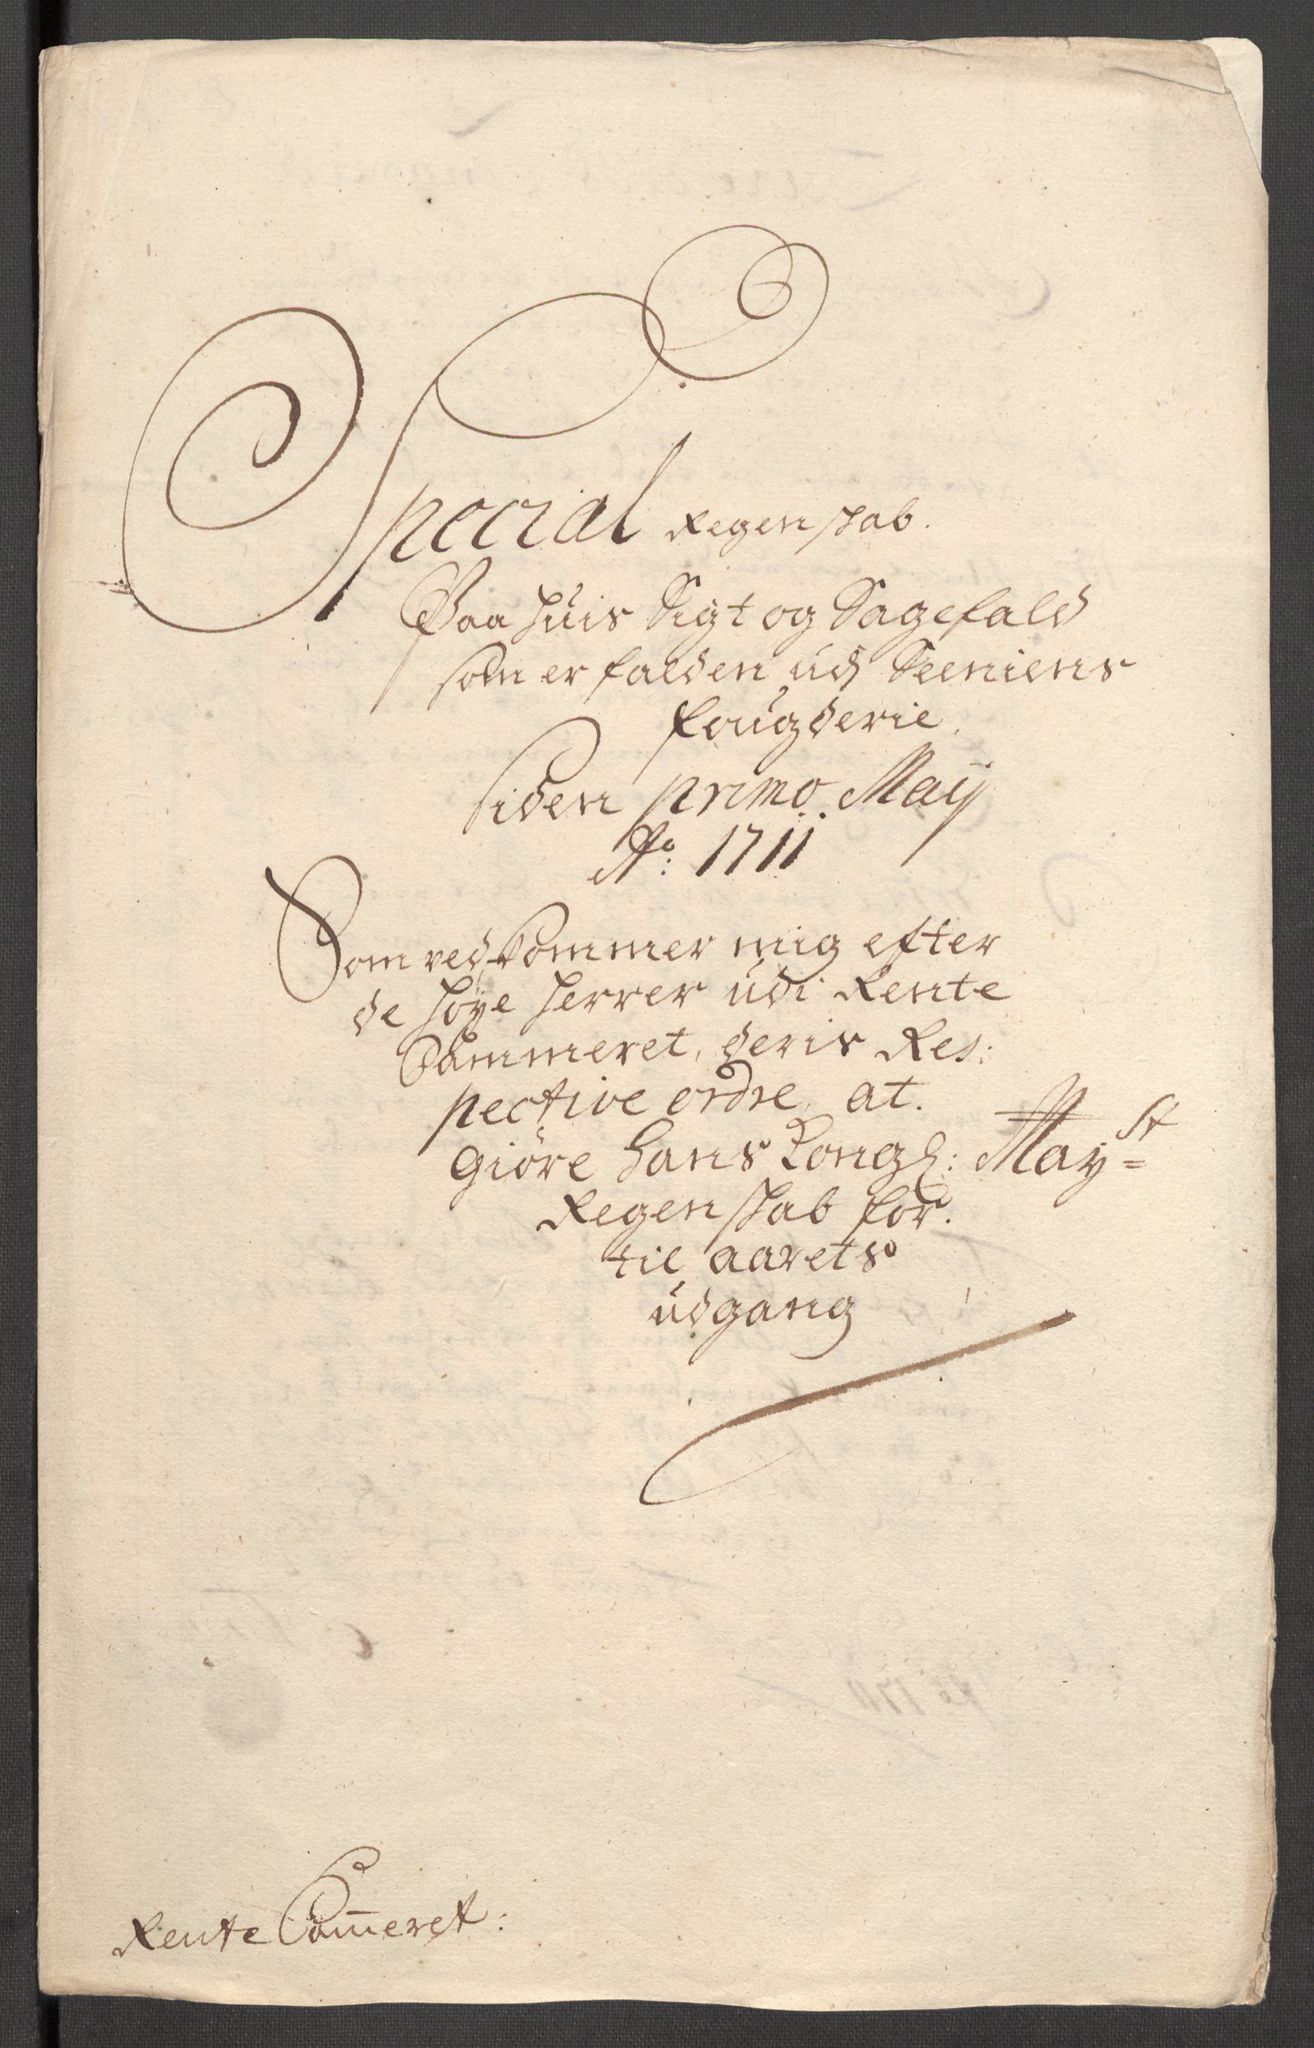 Special Regenskab.
Paa huis Sigt og Sagefald
som er falden udj Seeniens
fougderie.
Siden primo Maij
Ao: 1711
Som vedkommer mig efter
de høye herrer udi Rente
Cammeret, deris Res:
pective ordre, at.
giøre hans Kongl: May st
Regenskab for.
til aarets
udgang
Rente Cam̄eret: